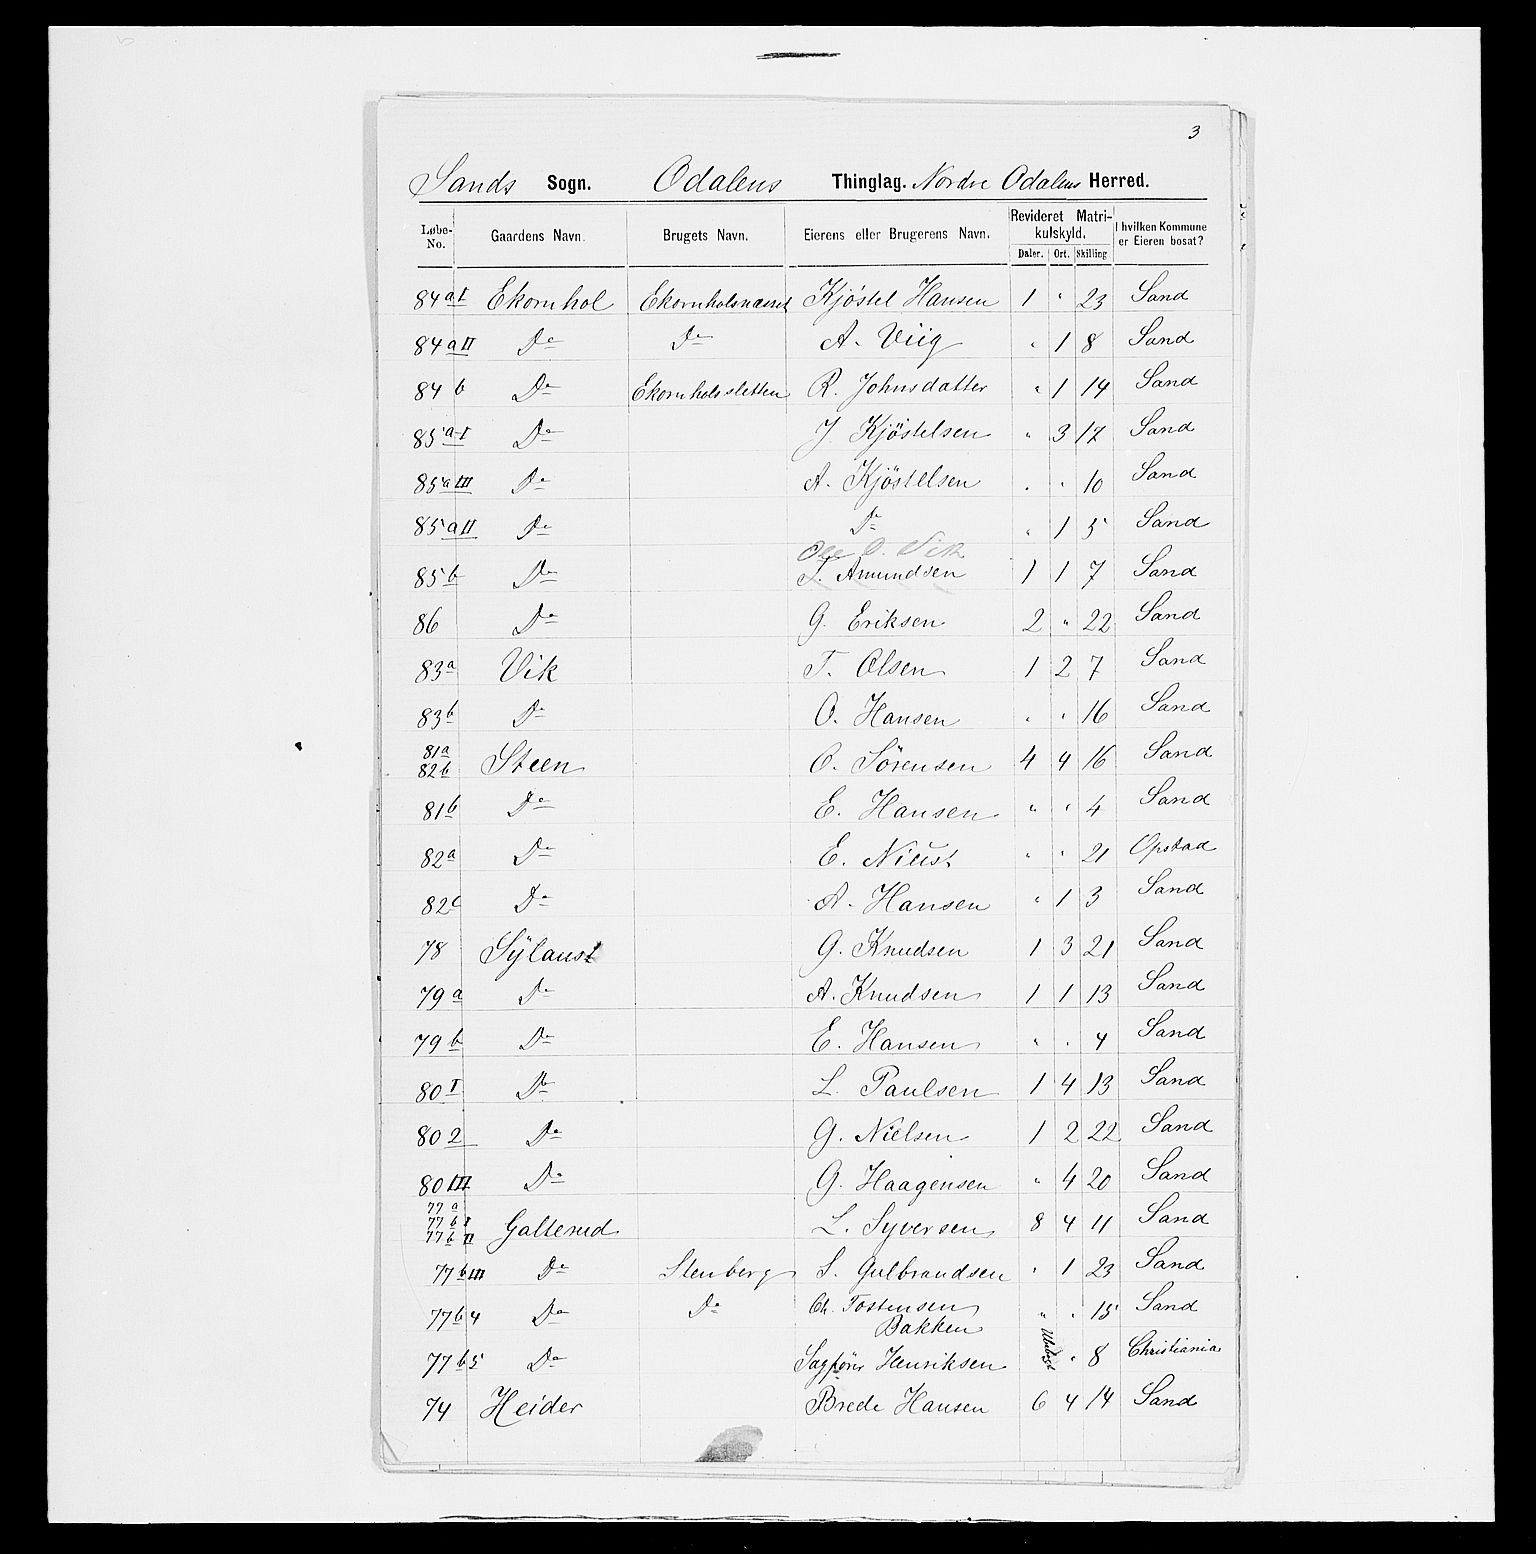 3
Sands Sogn. Odalens Thinglag. Nordre Odalens Herred.
Løbe-No. Gaardens Navn. Brugets Navn. Eierens eller Brugerens Navn. Revideret Matrikulskyld. Daler. Ort. Skilling I hvilken Kommune er Eieren bosat?
84 a I Ekornhol Ekornholsnæset Kjöstel Hansen 1 " 23 Sand
84 a II Do Do A. Viig " 1 8 Sand
84 b Do Ekornholssletten R. Johnsdatter " 1 14 Sand
85 a I Do J. Kjöstelsen " 3 17 Sand
85 a III Do A. Kjöstelsen " " 10 Sand
85 a II Do Do " 1 5 Sand
Ole O. Vik
85 b Do T. Amundsen 1 1 7 Sand
86 Do G. Eriksen 2 " 22 Sand
83 a Vik T. Olsen 1 2 7 Sand
83 b Do O. Hansen " " 16 Sand
81 a
82 b Steen O. Sörensen 4 4 16 Sand
81 b Do E. Hansen " " 4 Sand
82 a Do E. " " 21 Opstad
82 c Do A. Hansen " 1 3 Sand
78 Sÿlaust G. Knudsen 1 3 21 Sand
79 a Do A. Knudsen 1 1 13 Sand
79 b Do E. Hansen " " 4 Sand
80 I Do L. Paulsen 1 4 13 Sand
80 2 Do G. Nielsen 1 2 22 Sand
80 III Do G. Haagensen " 4 20 Sand
77 a
77 b I Galterud L. Syversen 8 4 11 Sand
77 b II
77 b III Do Stenberg S. Gulbrandsen " 1 23 Sand
77 b 4 Do Do Ch. Tostensen " " 15 Sand
Bakken
77 b 5 Do Sagförer Henriksen " 8 Christiania
74 Heider Brede Hansen 6 4 14 Sand